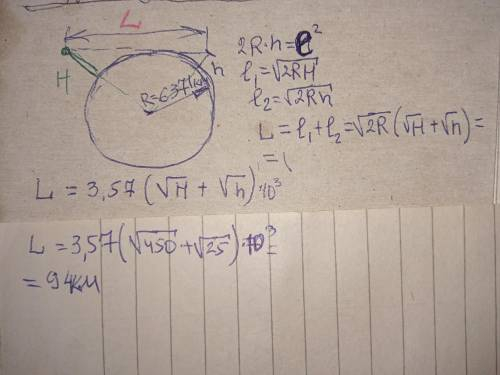 L
H
h
R=6371км
2R·h=ℓ²
ℓ₁=√2RH
ℓ₂=√2Rh
L=ℓ₁+ℓ₂=√2R(√H+√h)=
=(
L = 3,57(√H + √h)·10³
L=3,57(√450+√25)·10³=
=94км